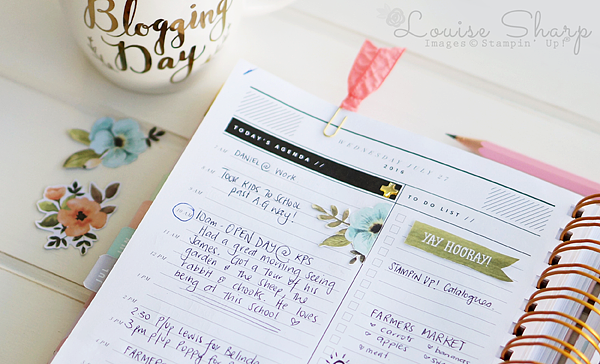 Blogging
Day
Louise Sharp
Images © Stampin' Up!
WEDNESDAY JULY 27
2016
TODAY'S AGENDA //
DANIEL @ WORK
TOOK KIDS TO SCHOOL
past A.G. way!
10am - OPEN DAY @ KPS
Had a great morning seeing
James. Got a tour of his
garden & the sheep, the
rabbit & chooks. He loves
being at this school ♡
2:50 P/up Lewis for Belinda
3pm P/up Poppy for
FARMERS
TO DO LIST //
YAY HOORAY!
STAMPIN' UP! Catalogues
FARMERS MARKET
carrots
bananas
apples
meat